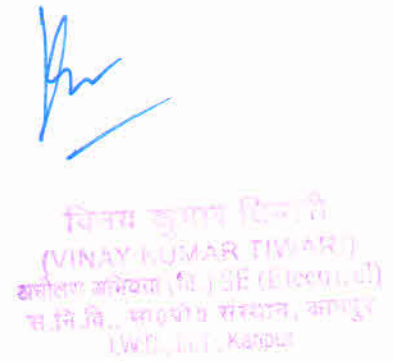 विनय कुमार तिवारी
(VINAY KUMAR TIWARI)
अधीक्षण अभियंता (वि.) SE (Electrical)
सं.नि.वि., भा०प्रौ० संस्थान, कानपुर
I.W.D., I.I.T., Kanpur